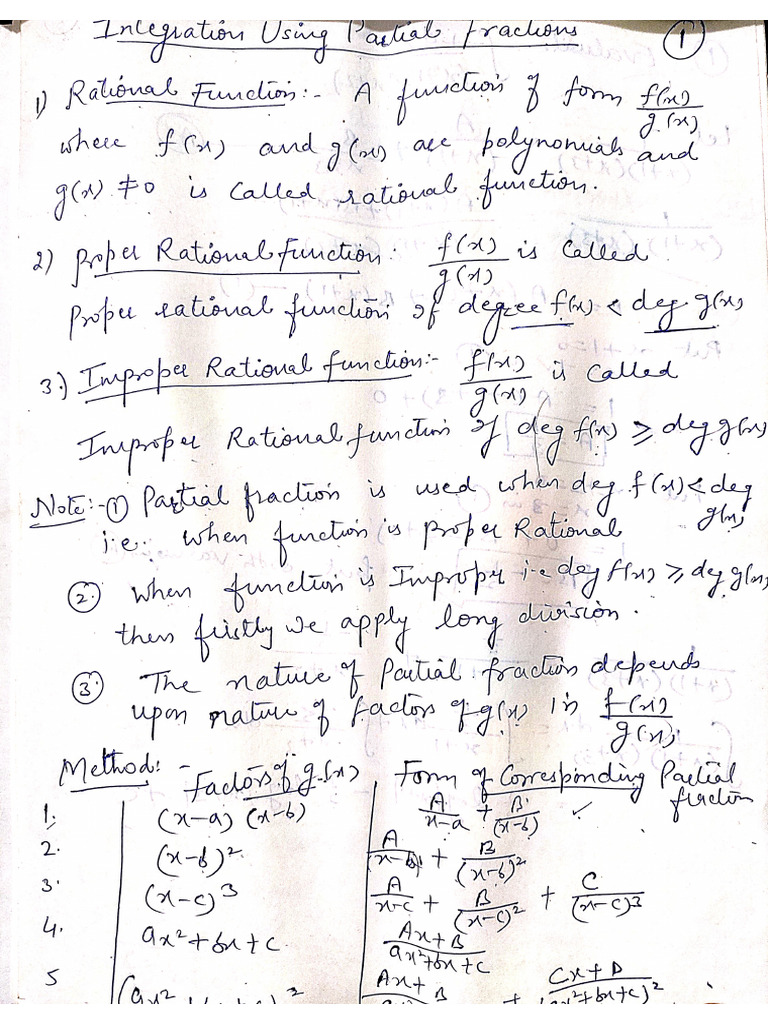 Integration Using Partial fractions ①
1) Rational Function:- A function of form f(x)/g(x)
where f(x) and g(x) are polynomials and
g(x) ≠ 0 is called rational function.
2) Proper Rational Function. f(x)/g(x) is called
Proper rational function if degree f(x) < deg g(x)
3.) Improper Rational function:- f(x)/g(x) is called
Improper Rational function if deg f(x) ≥ deg g(x)
Note:- ① Partial fraction is used when deg f(x) < deg g(x)
i.e. when function is Proper Rational
②. when function is Improper i.e deg f(x) ≥ deg g(x)
then firstly we apply long division.
③ The nature of Partial fraction depends
upon nature of factors of g(x) in f(x)/g(x).
Method:- Factors of g(x) Form of Corresponding Partial fraction
1. (x-a) (x-b) A/(x-a) + B/(x-b) ✓
2. (x-b)² A/(x-b) + B/(x-b)²
3. (x-c)³ A/(x-c) + B/(x-c)² + C/(x-c)³
4. ax²+bx+c (Ax+B)/(ax²+bx+c)
5 (ax² Ax+B + (Cx+D)/(ax²+bx+c)²